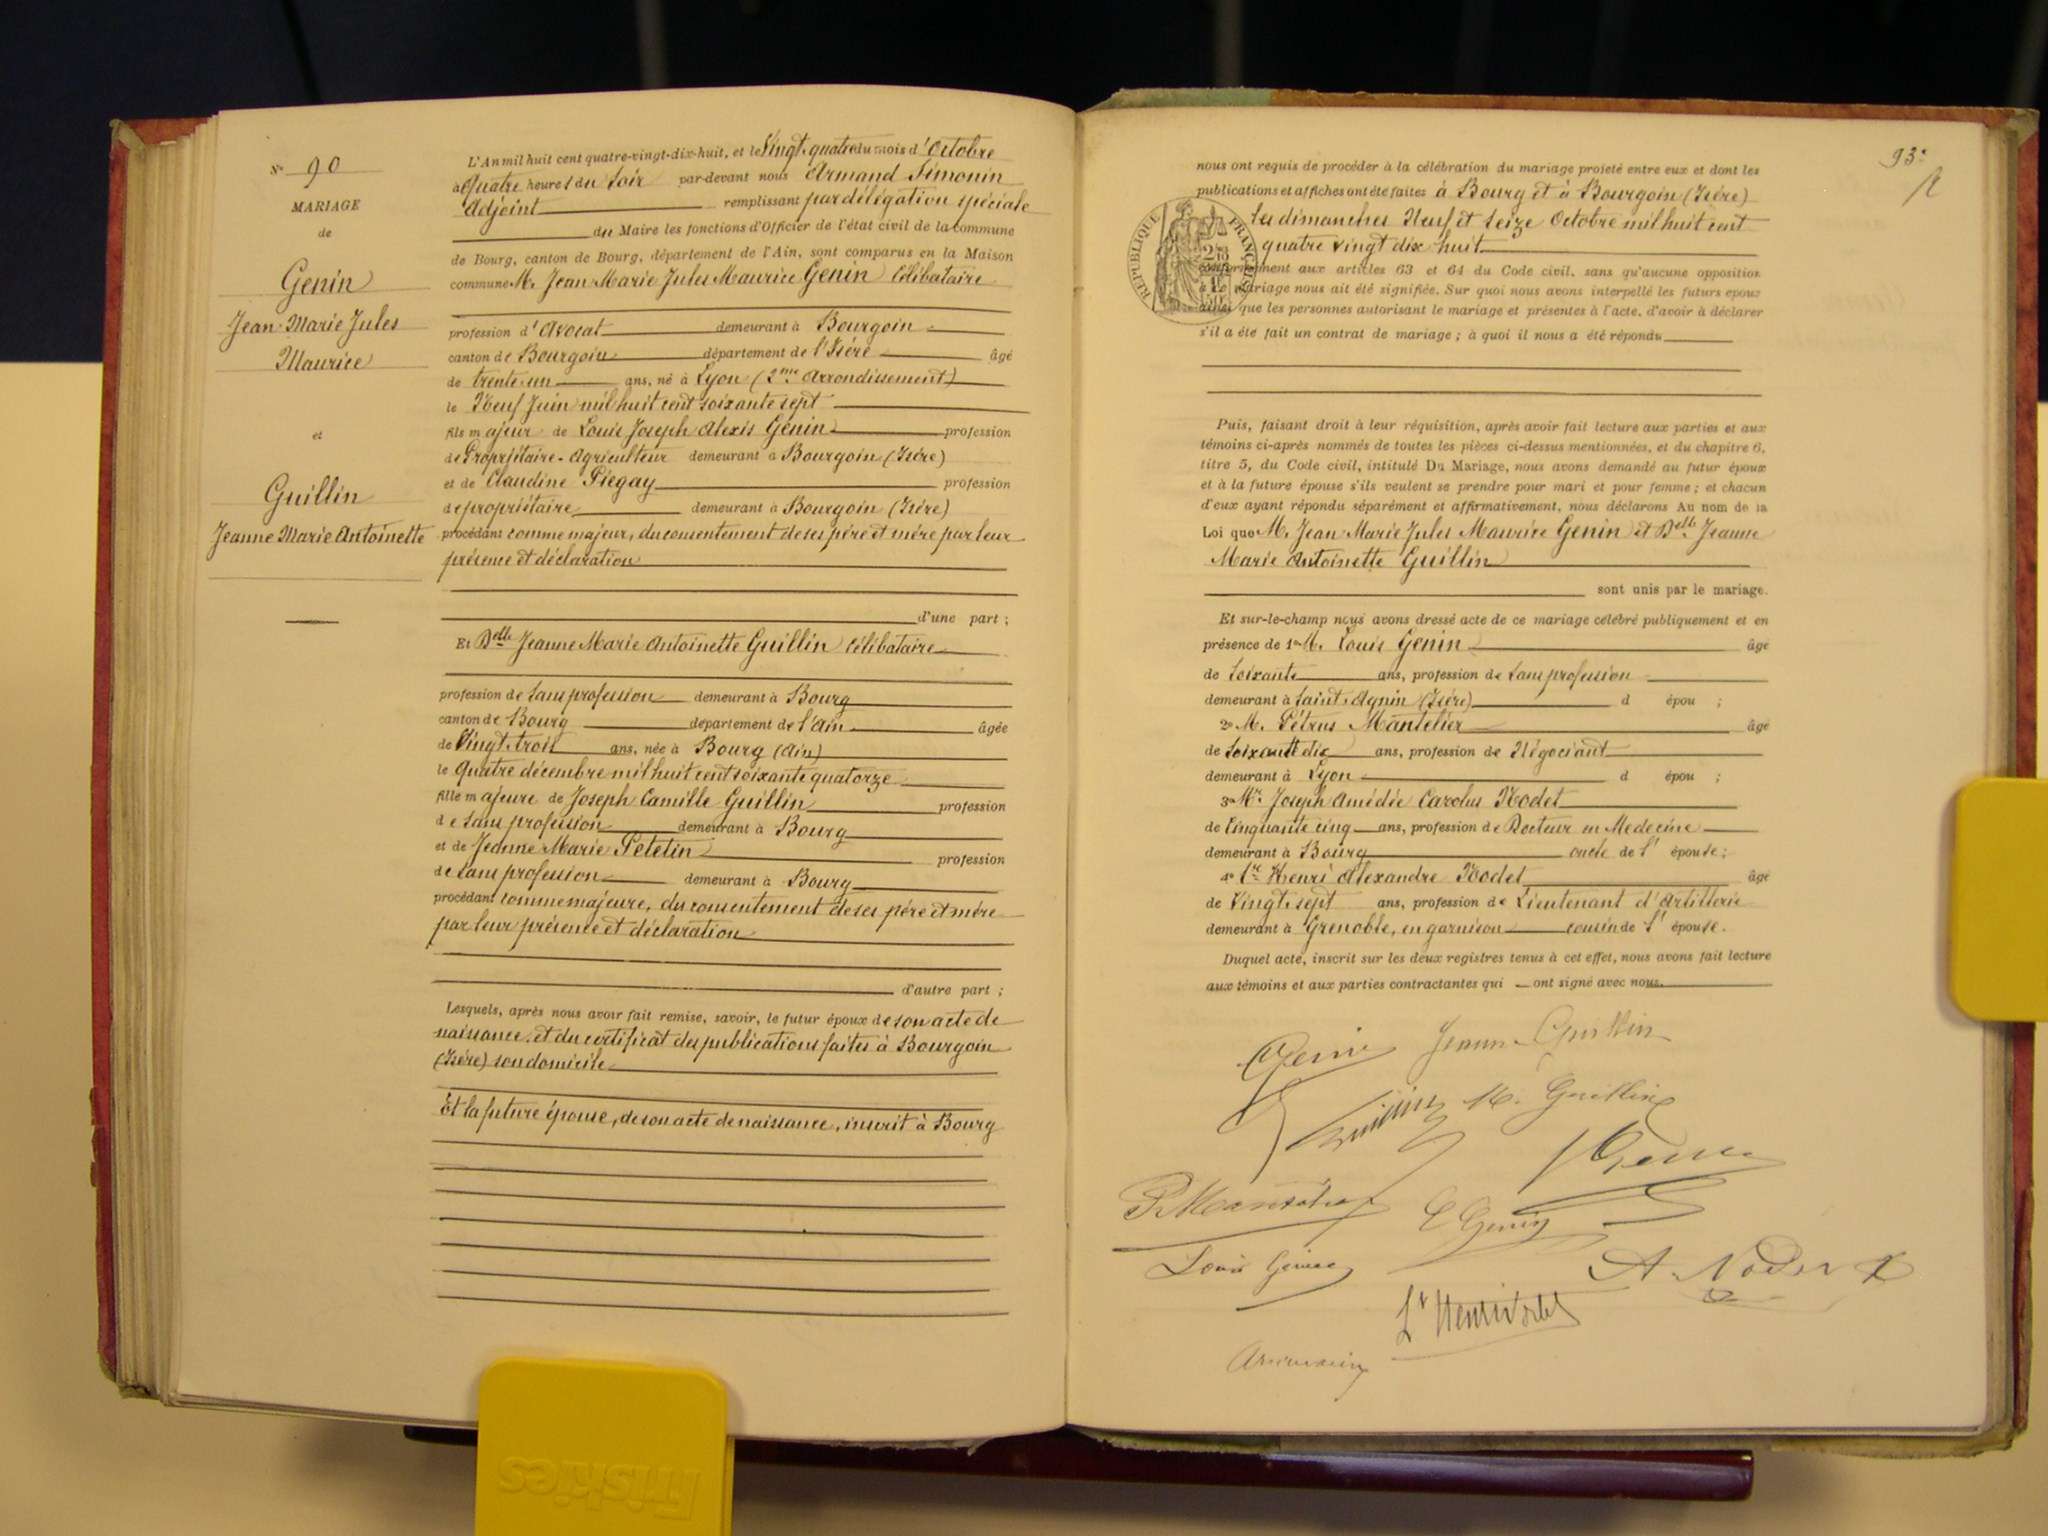 N° 90
MARIAGE
de
Genin
Jean-Marie Jules
Maurice
et
Guillin
Jeanne Marie Antoinette
L'An mil huit cent quatre-vingt-dix-huit, et le Vingt-quatre du mois d'Octobre
à Quatre heures du Soir par-devant nous Armand Simonin
Adjoint remplissant par délégation spéciale
du Maire les fonctions d'Officier de l'état civil de la commune
de Bourg, canton de Bourg, département de l'Ain, sont comparus en la Maison
commune M. Jean Marie Jules Maurice Genin célibataire
profession d'Avocat demeurant à Bourgoin
canton de Bourgoin département de l'Isére âgé
de trente un ans, né à Lyon (2me Arrondissement)
le Neuf Juin mil huit cent soixante sept
fils majeur de Louis Joseph Alexis Genin profession
de Propriétaire-Agriculteur demeurant à Bourgoin (Isére)
et de Claudine Piégay profession
de propriétaire demeurant à Bourgoin (Isére)
procédant comme majeur, du consentement de ses père et mère par leur
présence et déclaration
d'une part ;
Et Delle Jeanne Marie Antoinette Guillin célibataire
profession de sans profession demeurant à Bourg
canton de Bourg département de l'Ain âgée
de Vingt-trois ans, née à Bourg (Ain)
le quatre décembre mil huit cent soixante quatorze
fille majeure de Joseph Camille Guillin profession
de sans profession demeurant à Bourg
et de Jeanne Marie Petetin profession
de sans profession demeurant à Bourg
procédant comme majeure, du consentement de ses père et mère
par leur présence et déclaration
d'autre part ;
Lesquels, après nous avoir fait remise, savoir, le futur époux de son acte de
naissance et du certificat des publications faites à Bourgoin
(Isére) son domicile
Et la future épouse, de son acte de naissance, inscrit à Bourg
93
nous ont requis de procéder à la célébration du mariage projeté entre eux et dont les
publications et affiches ont été faites à Bourg et à Bourgoin (Isére)
les dimanches Neuf et Seize Octobre mil huit cent
quatre vingt dix huit
REPUBLIQUE FRANÇAISE
conformément aux articles 63 et 64 du Code civil, sans qu'aucune opposition
à ce mariage nous ait été signifiée. Sur quoi nous avons interpellé les futurs époux
ainsi que les personnes autorisant le mariage et présentes à l'acte, d'avoir à déclarer
s'il a été fait un contrat de mariage ; à quoi il nous a été répondu
Puis, faisant droit à leur réquisition, après avoir fait lecture aux parties et aux
témoins ci-après nommés de toutes les pièces ci-dessus mentionnées, et du chapitre 6,
titre 5, du Code civil, intitulé Du Mariage, nous avons demandé au futur époux
et à la future épouse s'ils veulent se prendre pour mari et pour femme ; et chacun
d'eux ayant répondu séparément et affirmativement, nous déclarons Au nom de la
Loi que M. Jean Marie Jules Maurice Genin et Delle Jeanne
Marie Antoinette Guillin
sont unis par le mariage.
Et sur-le-champ nous avons dressé acte de ce mariage célébré publiquement et en
présence de 1° M. Louis Genin âgé
de Soixante ans, profession de sans profession
demeurant à Saint-Agnin (Isére) d épou ;
2° M. Pétrus Mantelier âgé
de Soixante dix ans, profession de Négociant
demeurant à Lyon d épou ;
3° Mr Joseph Amédée Carolus Nodet
de Cinquante cinq ans, profession de Docteur en Medecine
demeurant à Bourg oncle de l'épouse ;
4° Mr Henri Alexandre Nodet âgé
de Vingt-sept ans, profession de Lieutenant d'Artillerie
demeurant à Grenoble, en garnison cousin de l'épouse.
Duquel acte, inscrit sur les deux registres tenus à cet effet, nous avons fait lecture
aux témoins et aux parties contractantes qui ont signé avec nous.
Genin Jeanne Guillin
M. Guillin
Genin
P. Mantelier C Genin
Louis Genin A. Nodet
Lt Henri Nodet
Friskies